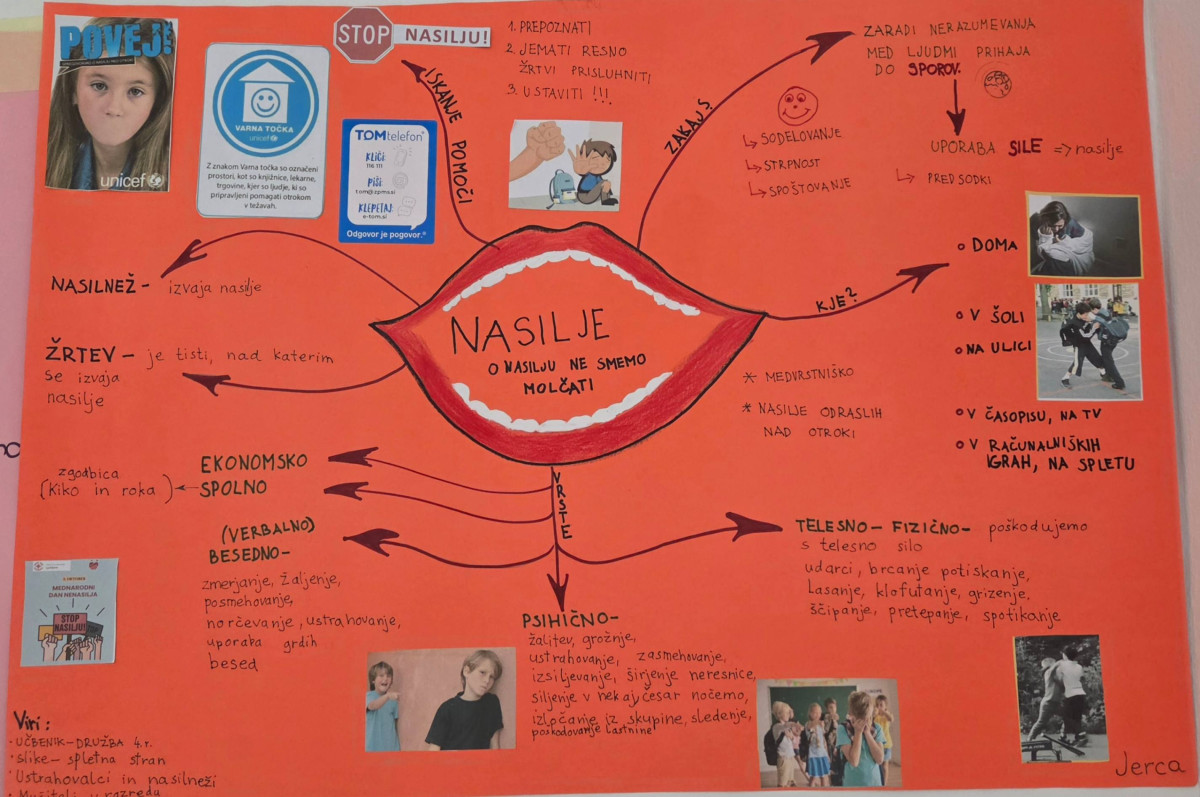 POVEJ
unicef
VARNA TOČKA
unicef
Z znakom Varna točka so označeni
prostori, kot so knjižnice, lekarne,
trgovine, kjer so ljudje, ki so
pripravljeni pomagati otrokom
v težavah.
STOP NASILJU!
TOMtelefon
KLIČI:
116 111
PIŠI:
tom@zpms.si
KLEPETAJ:
e-tom.si
Odgovor je pogovor.®
ISKANJE POMOČI
1. PREPOZNATI
2. JEMATI RESNO
ŽRTVI PRISLUHNITI
3. USTAVITI !!!
ZAKAJ?
SODELOVANJE
STRPNOST
SPOŠTOVANJE
ZARADI NERAZUMEVANJA
MED LJUDMI PRIHAJA
DO SPOROV.
UPORABA SILE => nasilje
PREDSODKI
NASILNEŽ - izvaja nasilje
ŽRTEV - je tisti, nad katerim
se izvaja
nasilje
NASILJE
O NASILJU NE SMEMO
MOLČATI
KJE?
DOMA
V ŠOLI
NA ULICI
V ČASOPISU, NA TV
V RAČUNALNIŠKIH
IGRAH, NA SPLETU
* MEDVRSTNIŠKO
* NASILJE ODRASLIH
NAD OTROKI
VRSTE
EKONOMSKO
SPOLNO
zgodbica
(Kiko in roka)
(VERBALNO)
BESEDNO-
zmerjanje, žaljenje,
posmehovanje,
norčevanje, ustrahovanje,
uporaba grdih
besed
PSIHIČNO-
žalitev, grožnje,
ustrahovanje, zasmehovanje,
izsiljevanje, širjenje neresnice,
siljenje v nekaj, česar nočemo,
izločanje iz skupine, sledenje,
poškodovanje lastnine
TELESNO - FIZIČNO - poškodujemo
s telesno silo
udarci, brcanje potiskanje,
lasanje, klofutanje, grizenje,
ščipanje, pretepanje, spotikanje
MEDNARODNI
DAN NENASILJA
STOP
NASILJU!
Viri:
· UČBENIK - DRUŽBA 4.r.
· slike - spletna stran
· Ustrahovalci in nasilneži
Jerca